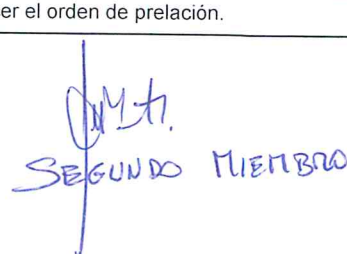 er el orden de prelación.
SEGUNDO MIEMBRO